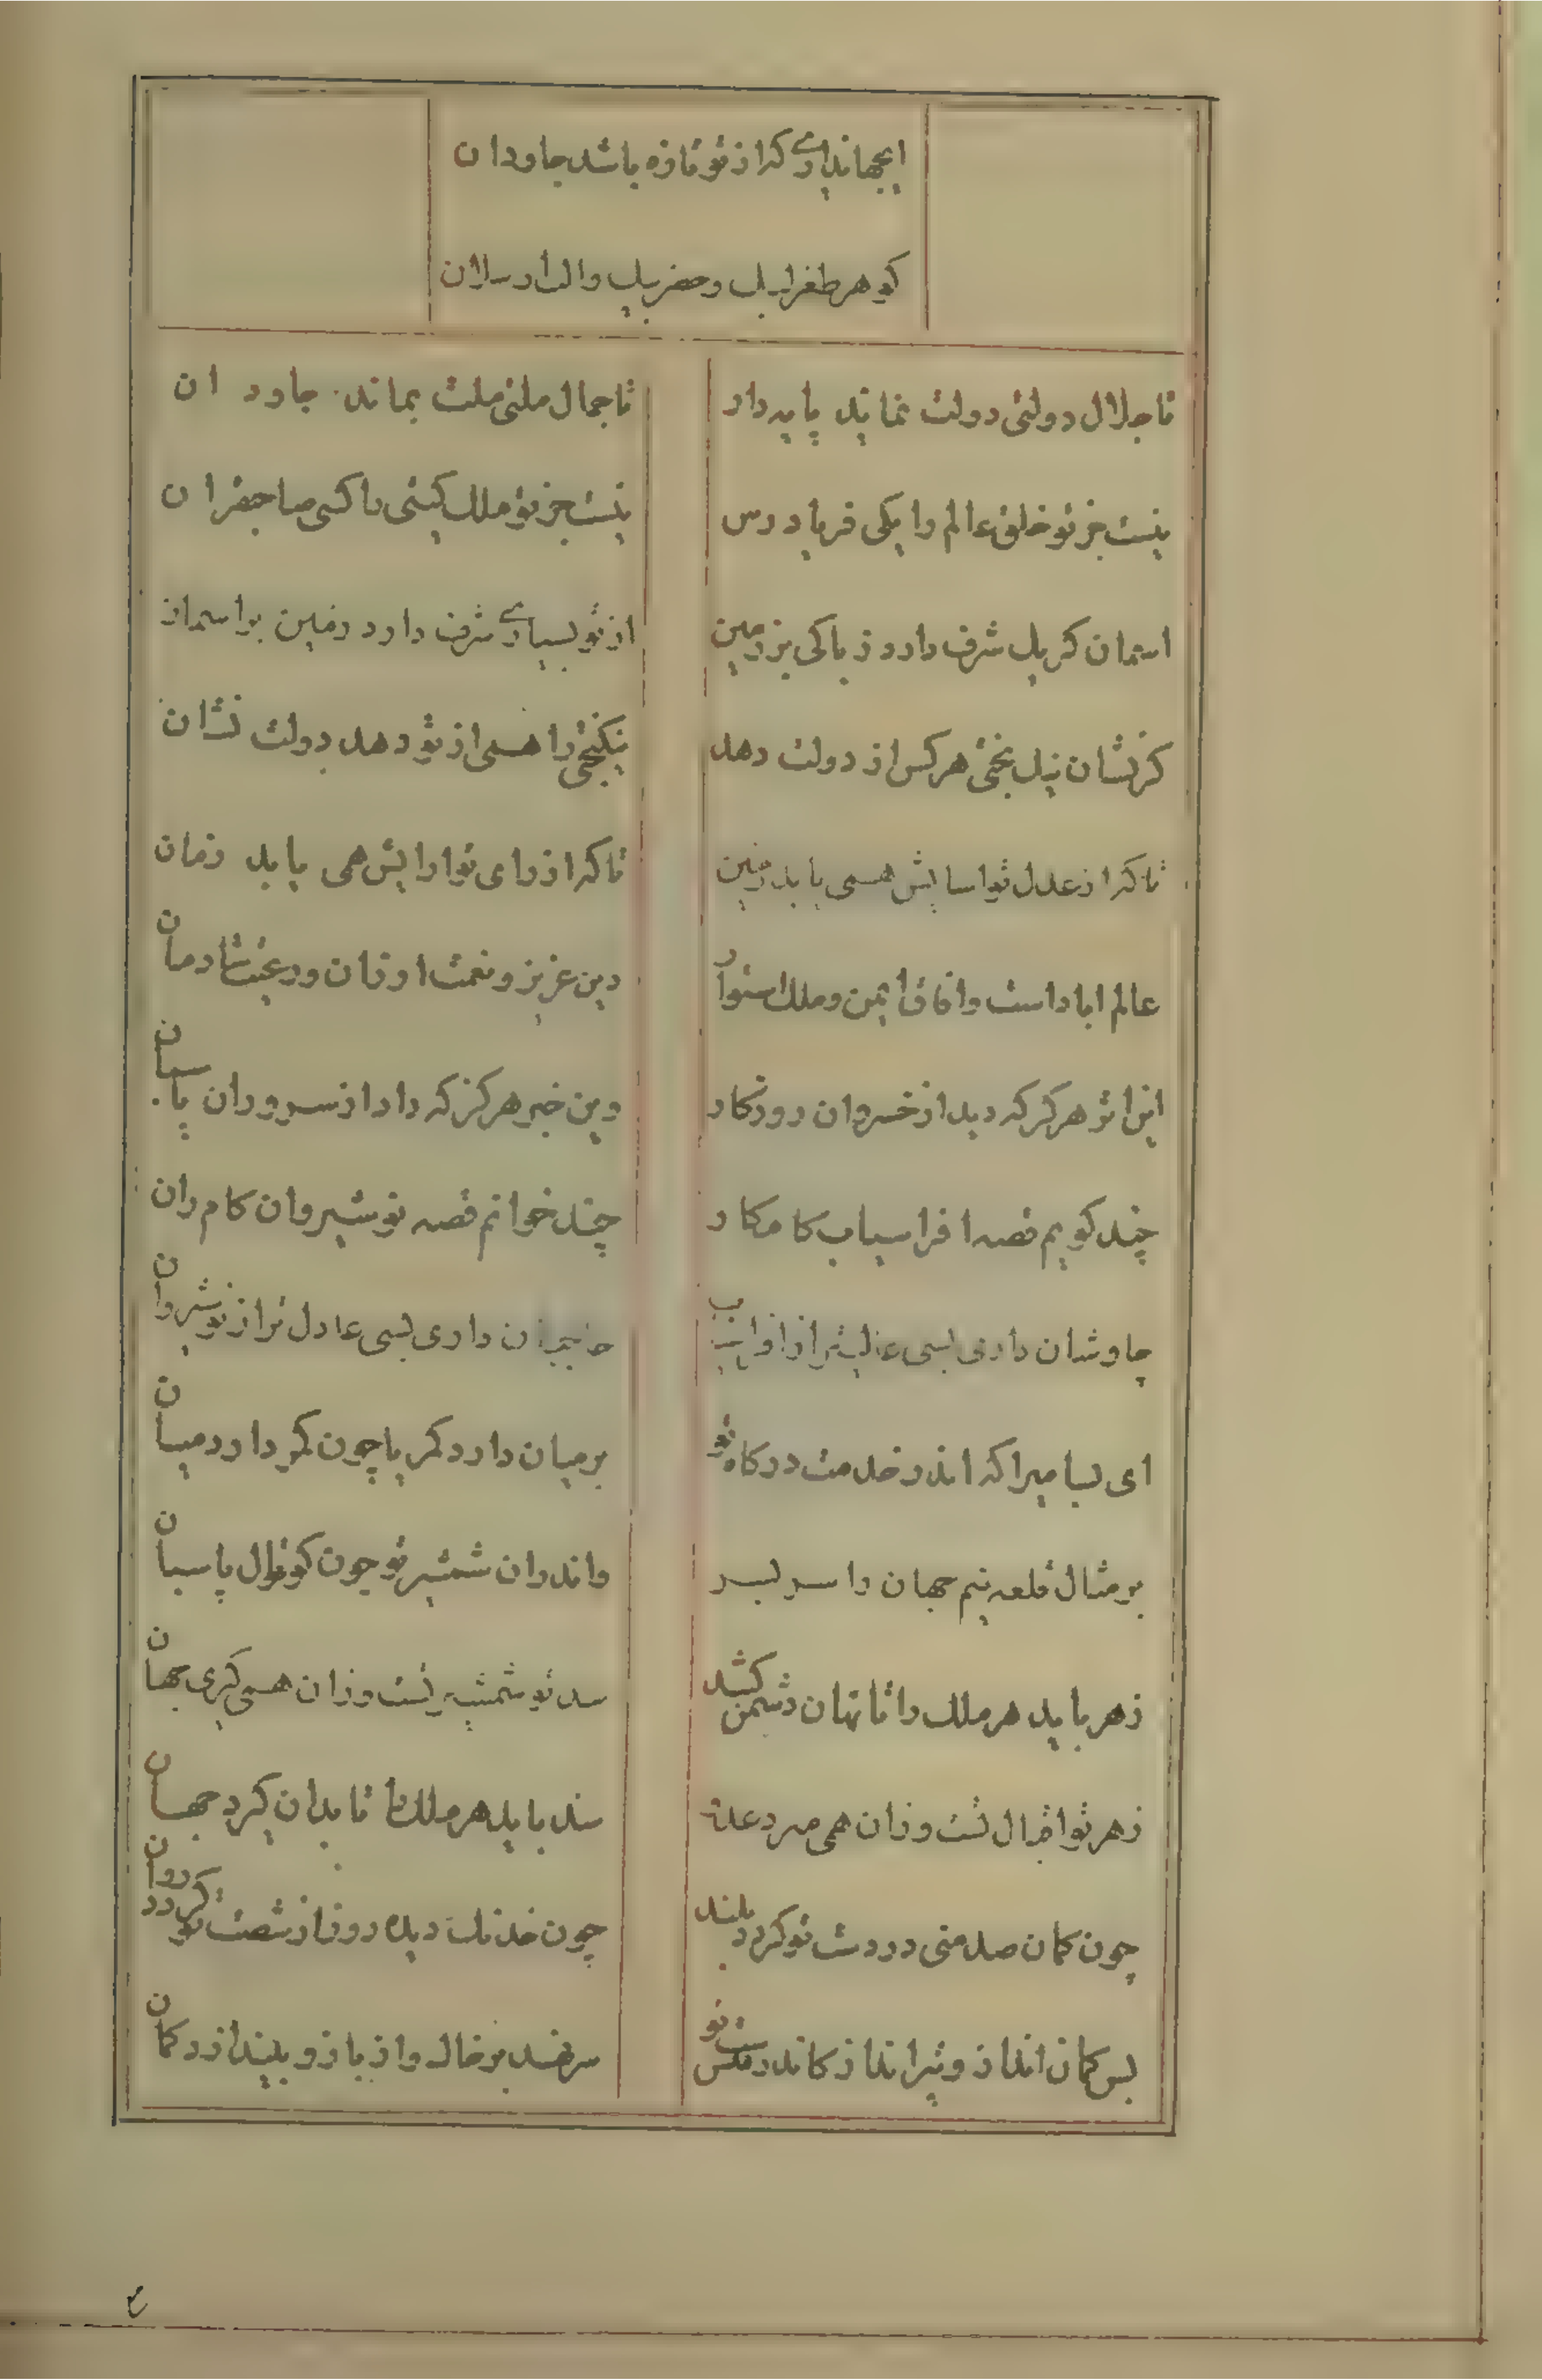 ایجهانداری کز از تو تازه باشد جاودان
کوهر طغرلبل و جغربیل و الب ارسلان
تا جلال دولتی دولت نماید پایدار
تا جمال ملتی ملت بماند جاودان
نیست جز تو خلق عالم را یکی فریادرس
نیست جز تو ملک کیتی را کسی صاحبقران
اسمان کر بل شرف دارد ز پاکی بر زمین
از تو بسیاری شرف دارد زمین بر اسمان
کر نشان نیک بختی هر کس از دولت دهد
نیکبختی را همی از تو دهد دولت نشان
تا که از عدل تو اسایش همی یابد زمین
تا که از رای تو ارایش همی یابد زمان
عالم اباد است و افاق ایمن و ملک استوار
دین عزیز و نعمت ارزان و رعیت شادمان
این اثر هرکز که دید از خسروان روزکار
وین خبر هرکز که داد از سروران باستان
چند کویم قصه افراسیاب کامکار
چند خوانم قصه نوشیروان کام ران
چاوشان داری بسی غالب تر از افراسیاب
حاجبان داری بسی عادل تر از نوشیروان
ای بسا میرا که اندر خدمت درکاه تو
بر میان دارد کمر یا چون کمر دارد میان
بر مثال قلعه بینم جهان را سر بسر
و اندر ان شمشیر تو چون کوتوال پاسبان
زهر باید هر ملک را تا نهان دشمن کشد
سد تو شمشیر تست و زان همی کیری جهان
زهر تو اقبال تست و زان همی میرد عدو
سد باید هر ملک را تا بدان کیرد جهان
چون کمان صد منی در دست تو کردد بلند
چون خدنک دیده دوز از شصت تو کردد روان
بس کمان انداز و تیر انداز کاندر دست تو
سر نهد بر خاک و از بازو بیندازد کمان
٤